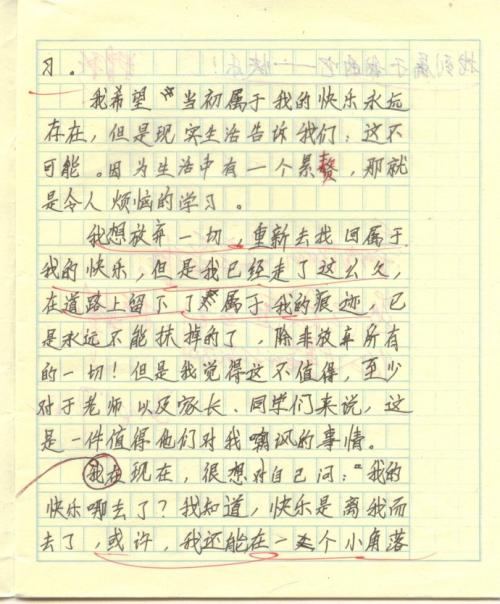 习。
我希望当初属于我的快乐永远
存在，但是现实生活告诉我们：这不
可能。因为生活中有一个累赘，那就
是令人烦恼的学习。
我想放弃一切，重新去找回属于
我的快乐，但是我已经走了这么久，
在道路上留下了属于我的痕迹，已
是永远不能抹掉的了，除非放弃所有
的一切！但是我觉得这不值得，至少
对于老师以及家长、同学们来说，这
是一件值得他们对我嘲讽的事情。
我在现在，很想对自己问：“我的
快乐哪去了？我知道，快乐是离我而
去了，或许，我还能在一个小角落